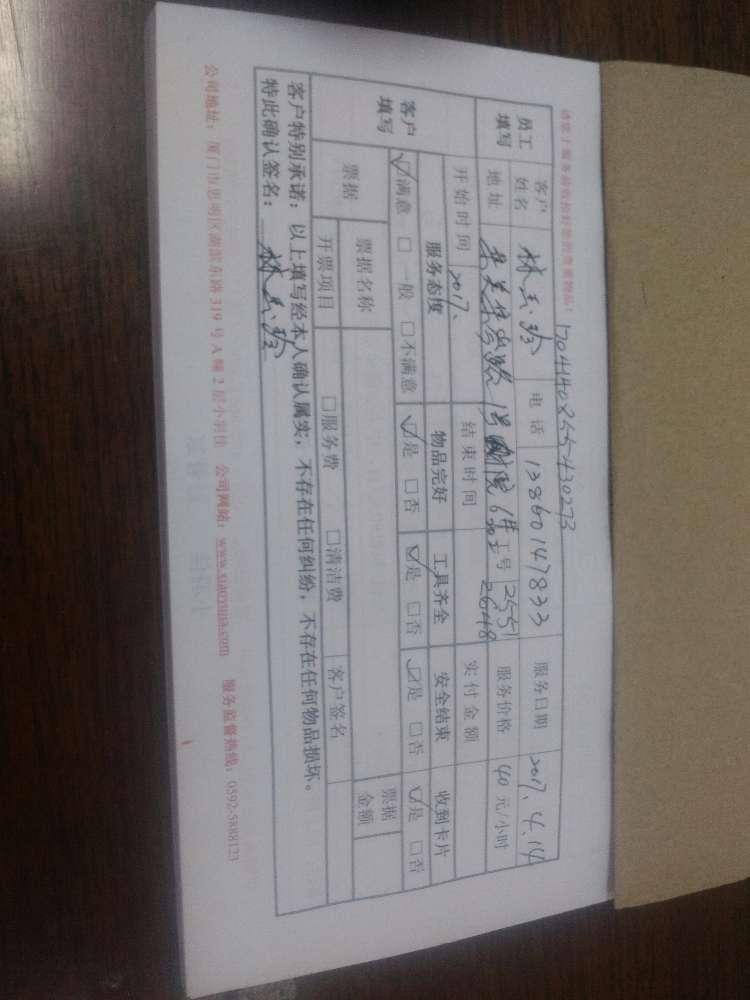 请您于服务前收拾好您的贵重物品！
170414085543027３
员工填写 客户姓名 林玉珍 电话 13860147833 服务日期 2017.4.14
地址 集美集岑路1号 6# 工号 2551 2648 服务价格 40元/小时
开始时间 2017. 结束时间 实付金额
客户填写 服务态度 物品完好 工具齐全 安全结束 收到卡片
☑满意 □一般 □不满意 ☑是 □否 ☑是 □否 ☑是 □否 ☑是 □否
票据 票据名称 票据金额
开票项目 □服务费 □清洁费 客户签名
客户特别承诺：以上填写经本人确认属实，不存在任何纠纷，不存在任何物品损坏。
特此确认签名：林玉珍
公司地址：厦门市思明区湖滨东路319号A幢2层小羽佳 公司网站：www.xiaoyujia.com 服务监督热线：0592-5888123